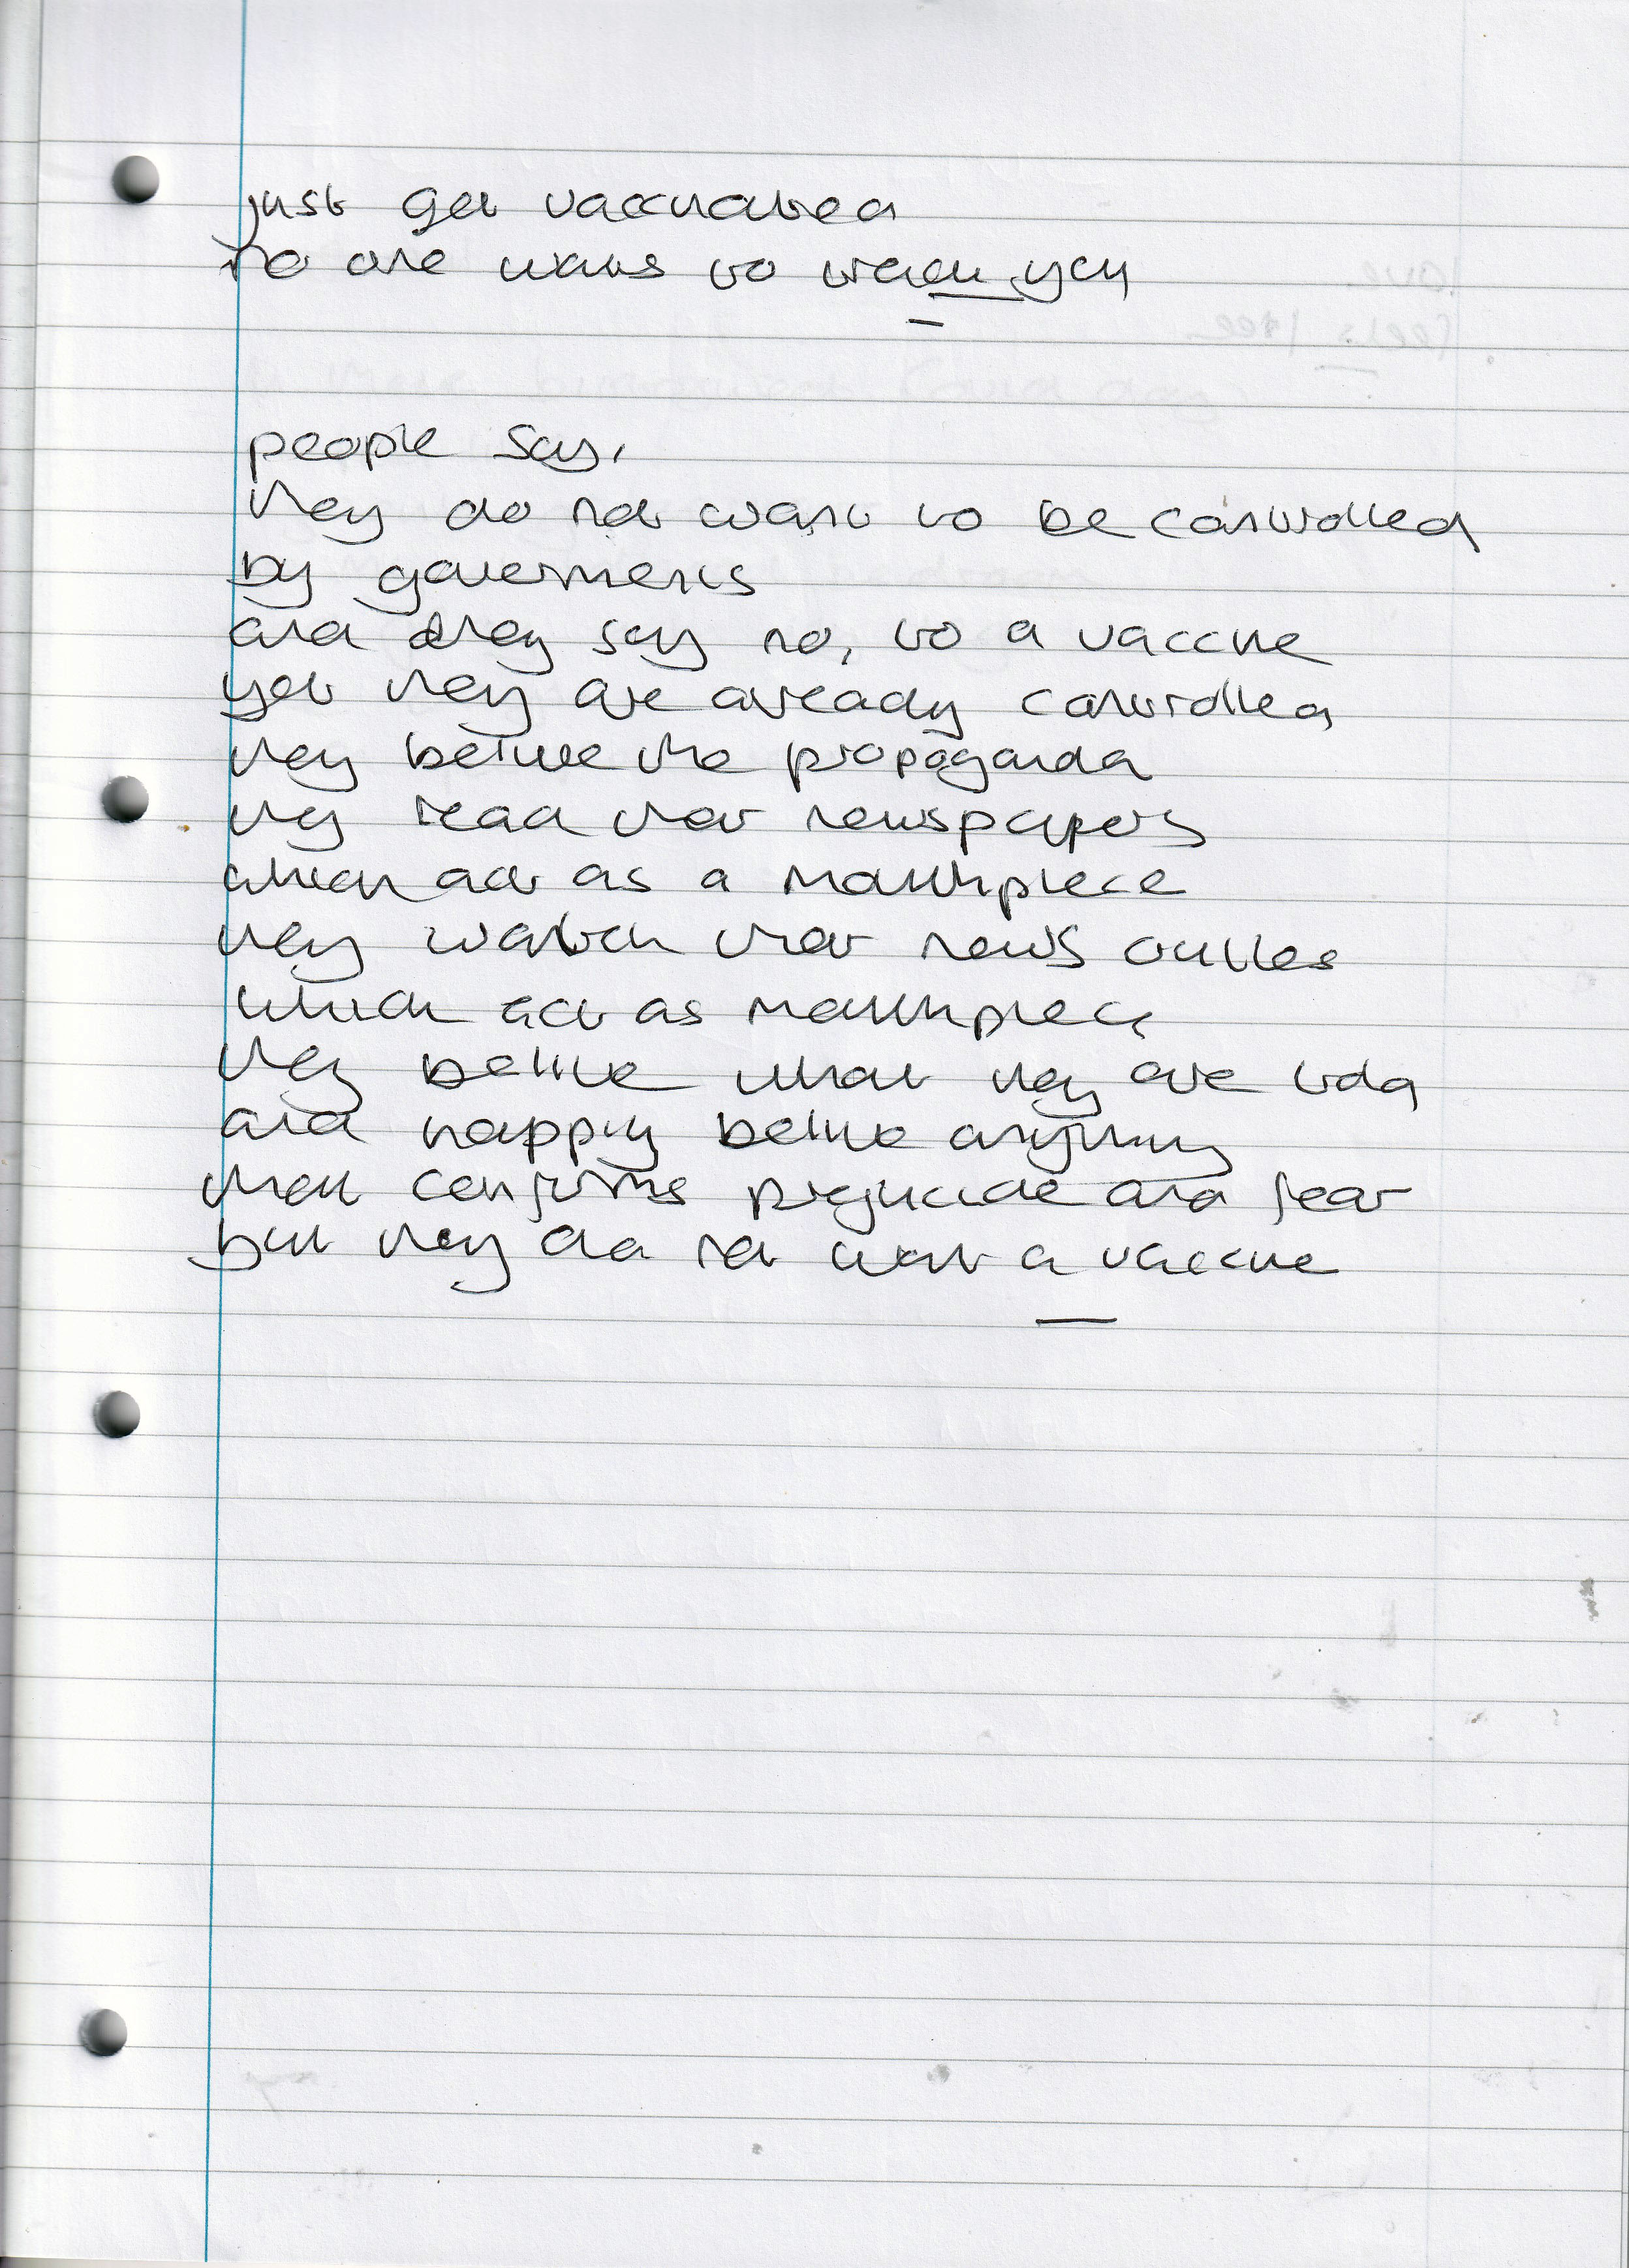 just get vaccinated
no one wants to track you
people say,
they do not want to be controlled
by goverments
and they say no, to a vaccine
yet they are already controlled
they belive the propaganda
they read their newspapers
which act as a mouthpiece
they watch their news outles
which act as mouthpiece
they belive what they are told
and happily belive anything
that confirms prejucide and fear
but they do not want a vaccine